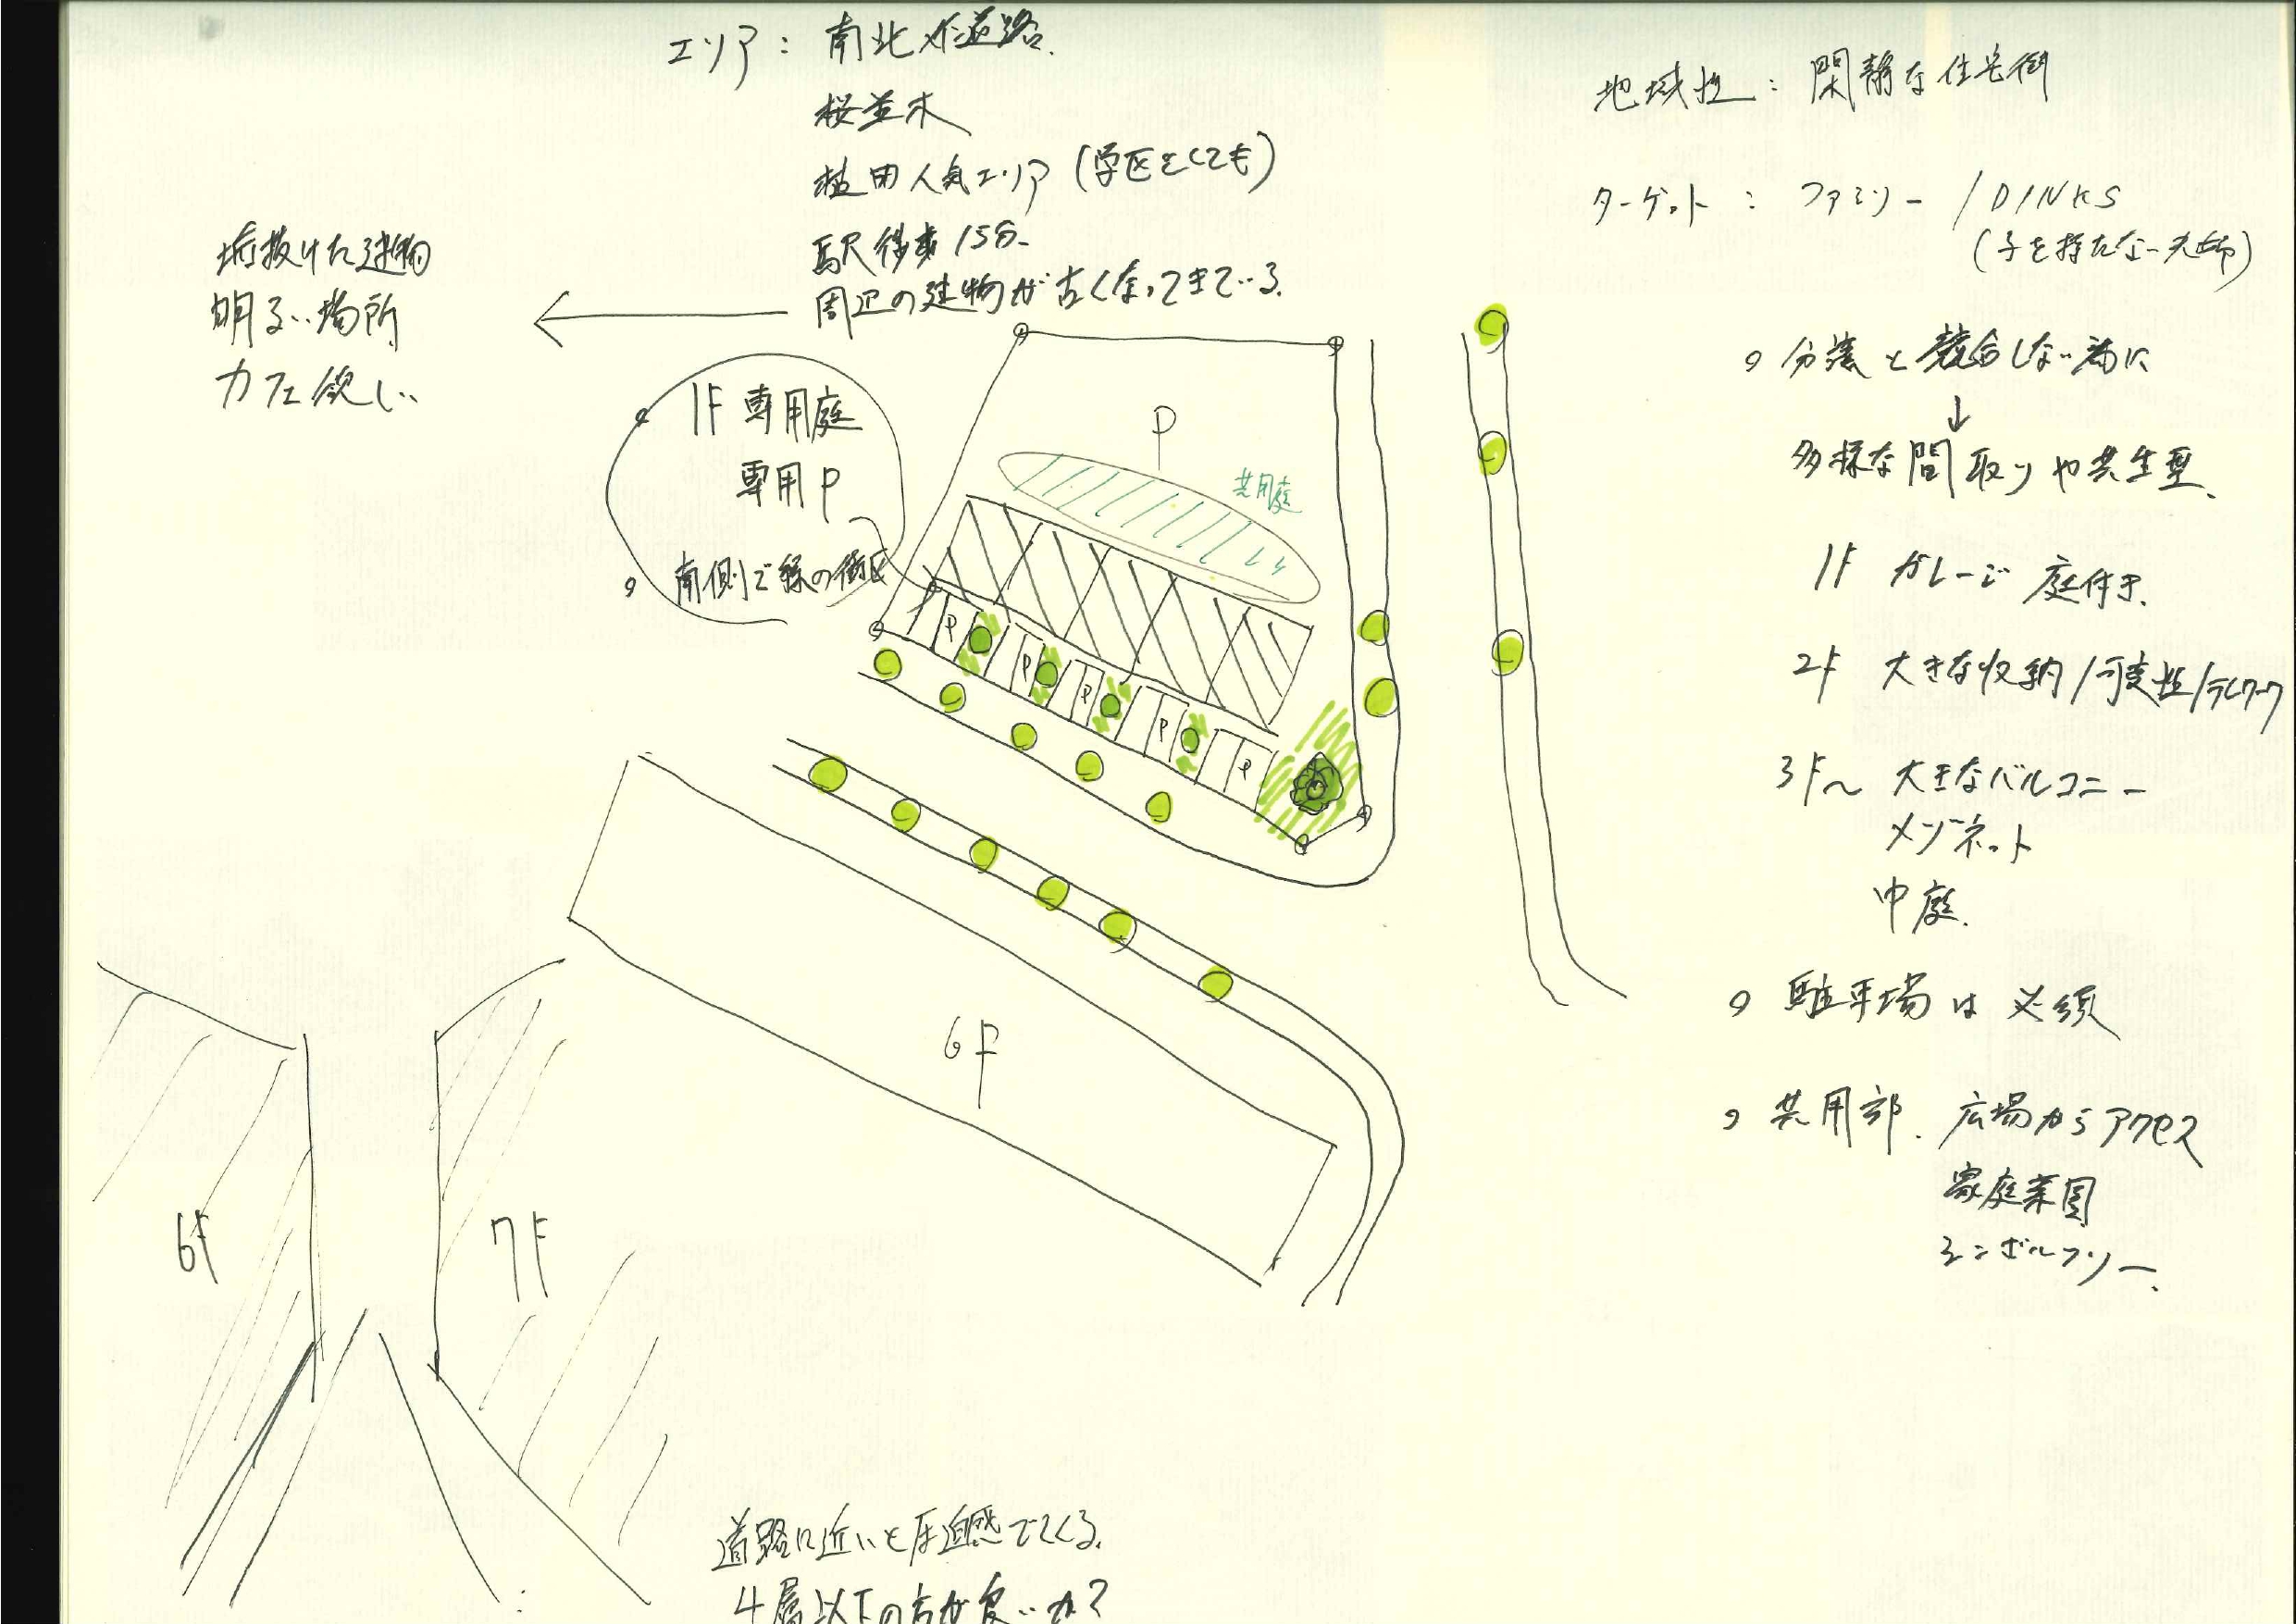 エリア：南北 道路.
桜並木
植田人気エリア (学区としても)
駅徒歩15分
周辺の建物が古くなってきている.
垢抜けた建物
明るい場所
カフェ欲しい
1F 専用庭
専用P
南側で緑の街区
P
共用庭
P
P
P
P
P
6F
6F
7F
道路に近いと圧迫感でてくる.
4層以下の方が良いか?
地域性：閑静な住宅街
ターゲット：ファミリー / DINKS
(子を持たない夫婦)
分譲と競合しない為に
↓
多様な間取りや共生型.
1F ガレージ 庭付き.
2F 大きな収納/可変性/テレワーク
3F〜 大きなバルコニー
メゾネット
中庭.
駐車場は必須
共用部. 広場からアクセス
家庭菜園
シンボルツリー.